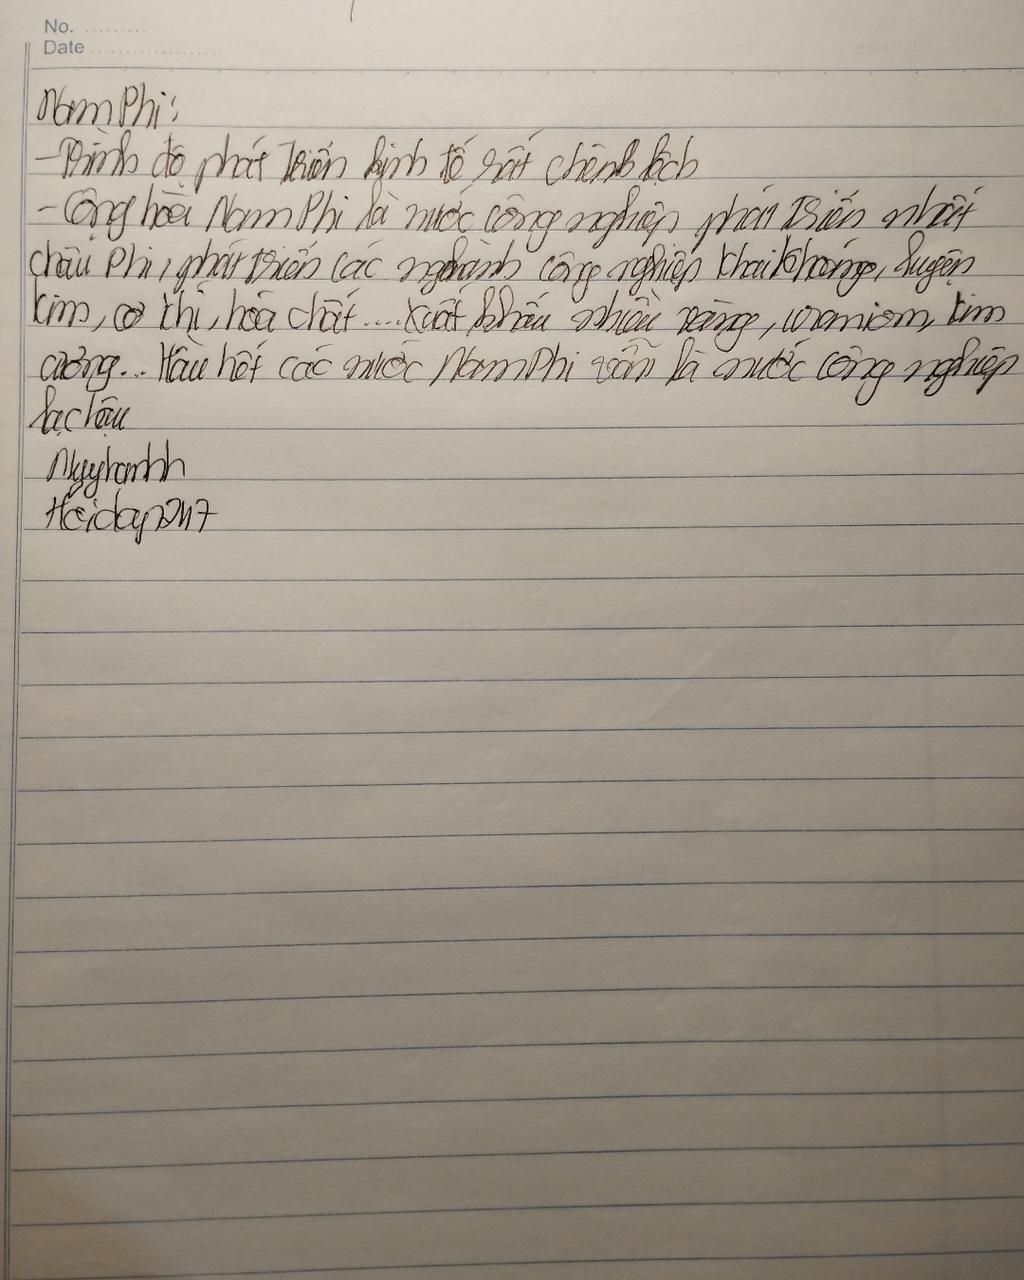 No. .........
Date ..................
Nam Phi:
- Trình độ phát triển kinh tế rất chênh lệch
- Cộng hòa Nam Phi là nước công nghiệp phát triển nhất
châu Phi, phát triển các nghành công nghiệp khai khoáng, luyện
kim, cơ khí, hóa chất.... xuất khẩu nhiều vàng, uraniom, kim
cương... Hầu hết các nước Nam Phi vẫn là nước công nghiệp
lạc hậu
Hoidap247